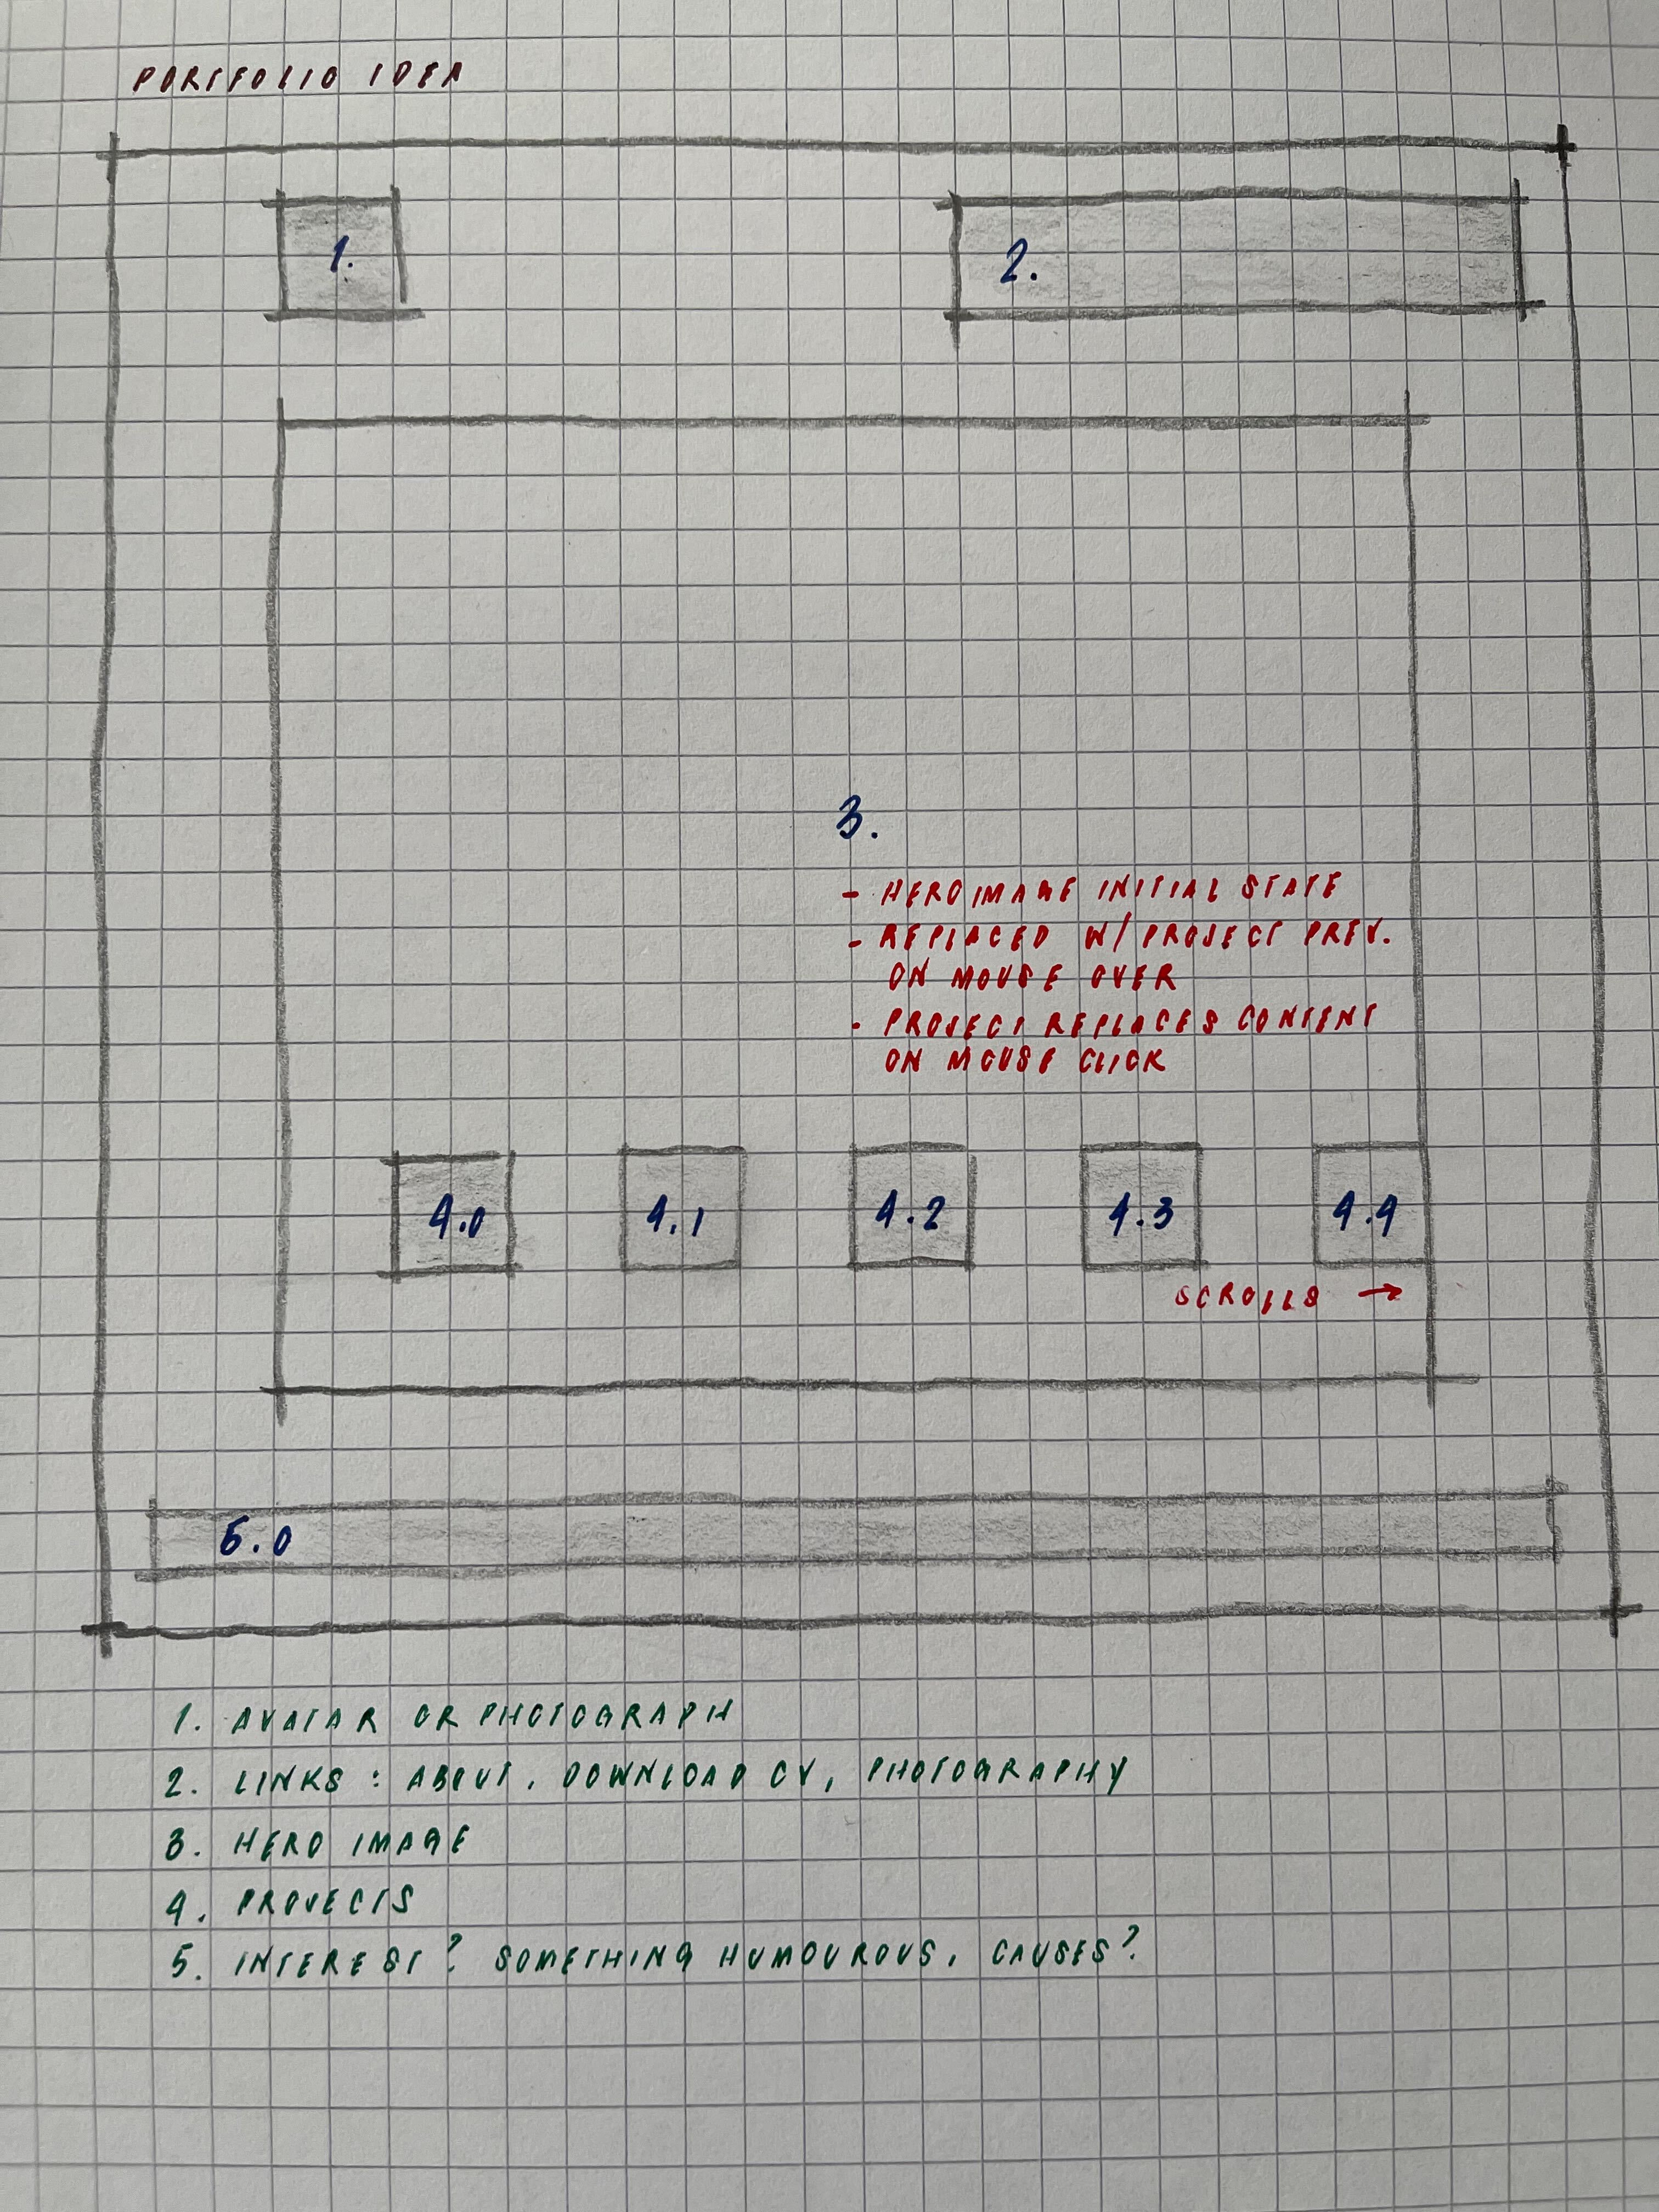 PORTFOLIO IDEA
1.
2.
3.
- HERO IMAGE INITIAL STATE
- REPLACED W/ PROJECT PREV.
ON MOUSE OVER
- PROJECT REPLACES CONTENT
ON MOUSE CLICK
4.0 4.1 4.2 4.3 4.4
SCROLLS →
5.0
1. AVATAR OR PHOTOGRAPH
2. LINKS : ABOUT, DOWNLOAD CV, PHOTOGRAPHY
3. HERO IMAGE
4. PROJECTS
5. INTEREST? SOMETHING HUMOUROUS, CAUSES?